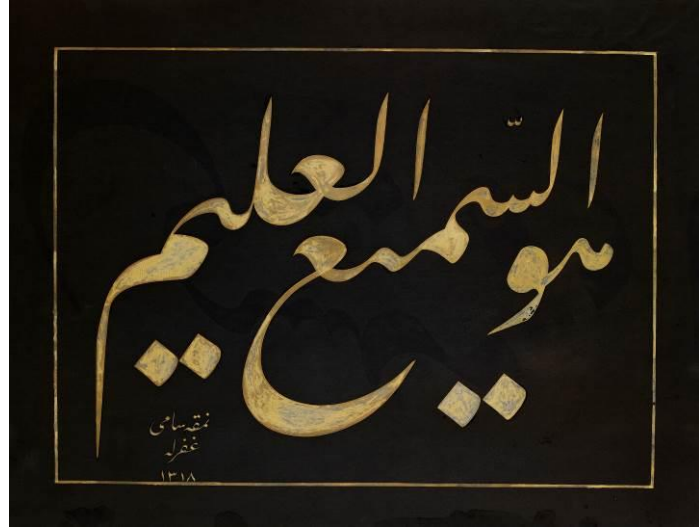 هو السّميع العليم
نمقه سامی
غفرله
١٣١٨